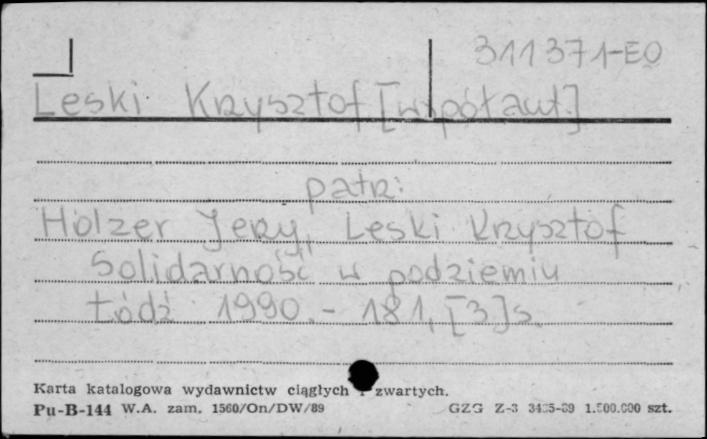 311371-EO
Leski Krzysztof [współaut.]
patrz:
Holzer Jerzy, Leski Krzysztof
Solidarność w podziemiu
Łódź 1990. - 181, [3] s.
Karta katalogowa wydawnictw ciągłych i zwartych.
Pu-B-144 W.A. zam. 1560/On/DW/89 GZG Z-3 3435-89 1.500.000 szt.